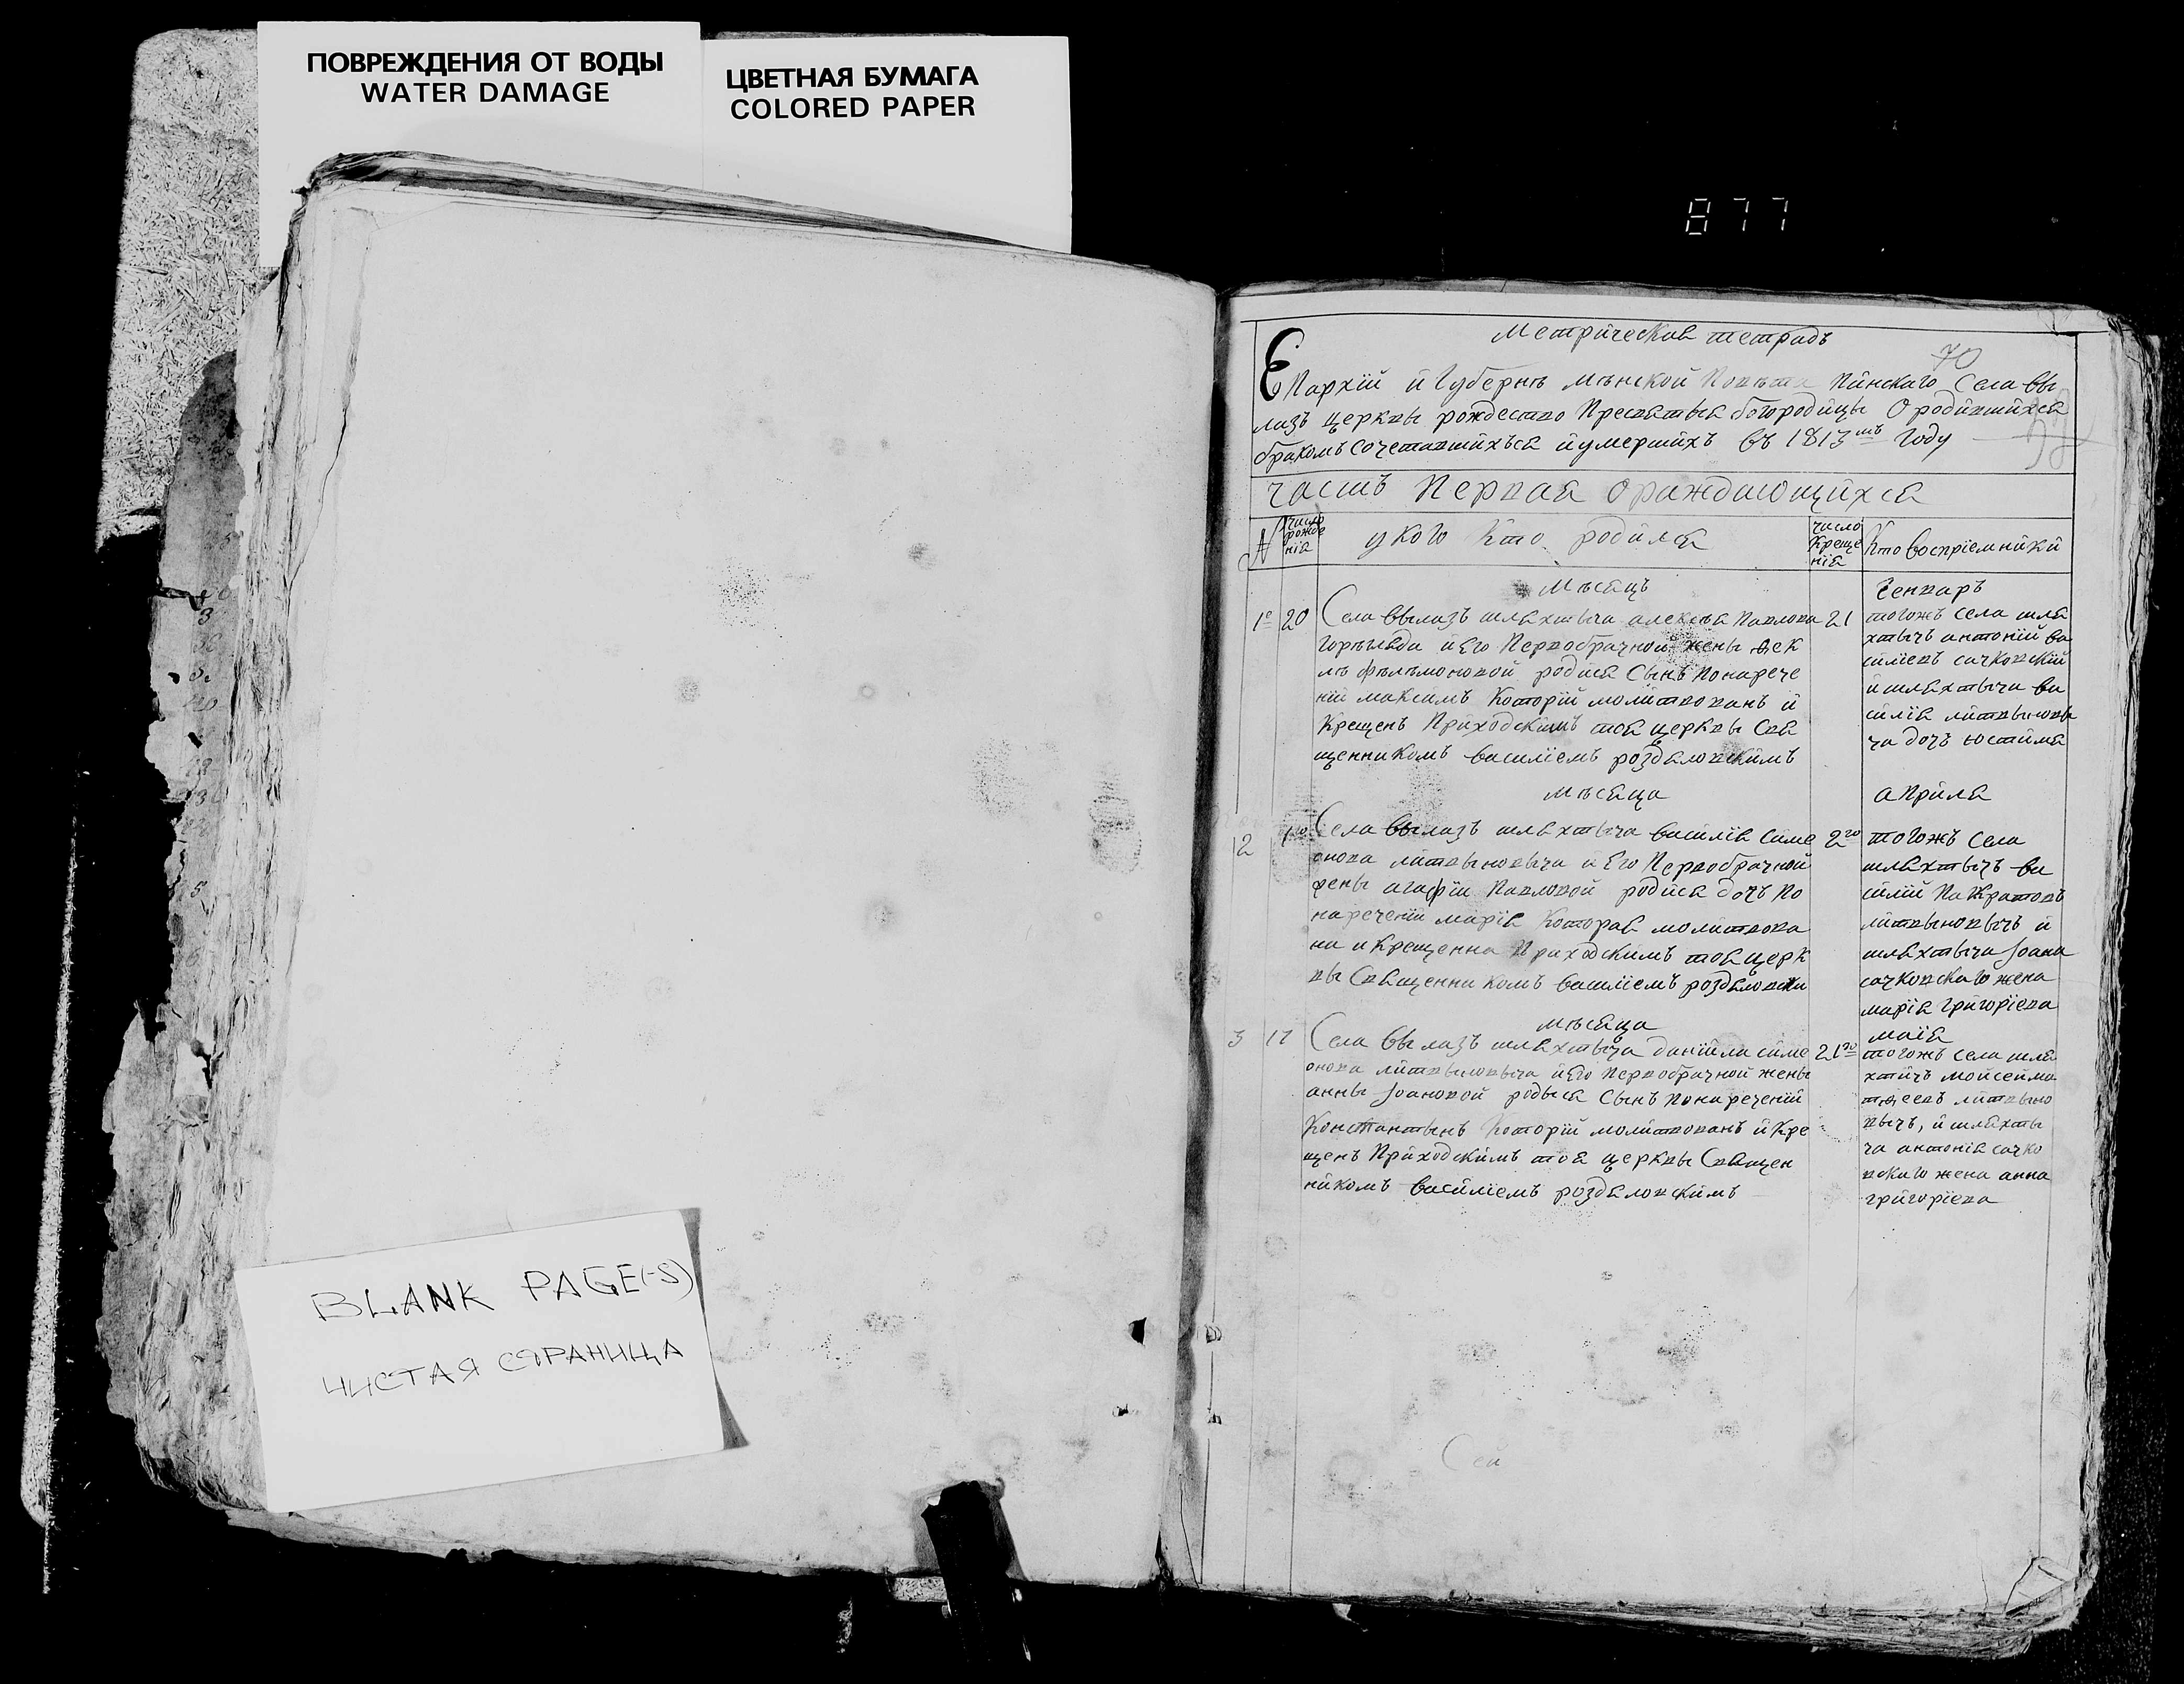 ПОВРЕЖДЕНИЯ ОТ ВОДЫ
WATER DAMAGE
ЦВЕТНАЯ БУМАГА
COLORED PAPER
877
BLANK PAGE(-S)
ЧИСТАЯ СТРАНИЦА
Метрическая тетрадь
70
Епархїи и Губернѣ мѣнской Повѣта Пинскаго Села Вы
лазъ церквы рождество Пресвятыя богородицы О родившихся
бракомъ сочетавшихъся и умершихъ въ 1813мъ Году
часть Первая О раждающихся
№
число рожденія
у кого Кто родился
число Крещенія
Кто воспріемники
Мѣсяцъ Генваръ
1е 20 Села Вылазъ шляхтыча алексѣя Павлова 21
и Его Первобрачной жены Ѳек
лы родися Сынъ По нарече
нїи максимъ Которїй молитвованъ и
Крещенъ Приходскимъ тоя церквы Свя
щенникомъ василїемъ роздяловскимъ
тогожъ села шля
хтычъ антонїй ва
силїевъ сачковскїй
и шляхтыча ва
силїя литвынови
ча дочъ юстина
мѣсяца априля
2 1го Села Вылазъ шляхтыча василїя Симе 2го
онова литвыновыча и Его Первобрачной
жены агафїи Павловой родися дочъ По
нареченїи марїя Которая молитвова
на и Крещенна Приходскимъ тоя церк
вы Священникомъ василїемъ роздяловски
тогожъ села
шляхтычъ ва
силїй Панкратовъ
литвыновычъ и
шляхтыча Іоана
сачковскаго жена
марїя григорїева
мѣсяца маїя
3 17 Села Вылазъ шляхтыча данїила симе 21го
онова литвыновыча и Его Первобрачной жены
анны Іоановой родыся Сынъ По нареченїи
Константынъ Которїй молитвованъ и Кре
щенъ Приходскимъ тоя церквы Священ
никомъ василїемъ роздяловскимъ
тогожъ села шля
хтичъ мойсей ма
тѳеевъ литвыно
вычъ, и шляхты
ча антонія сачко
вскаго жена анна
григорїева
Сей